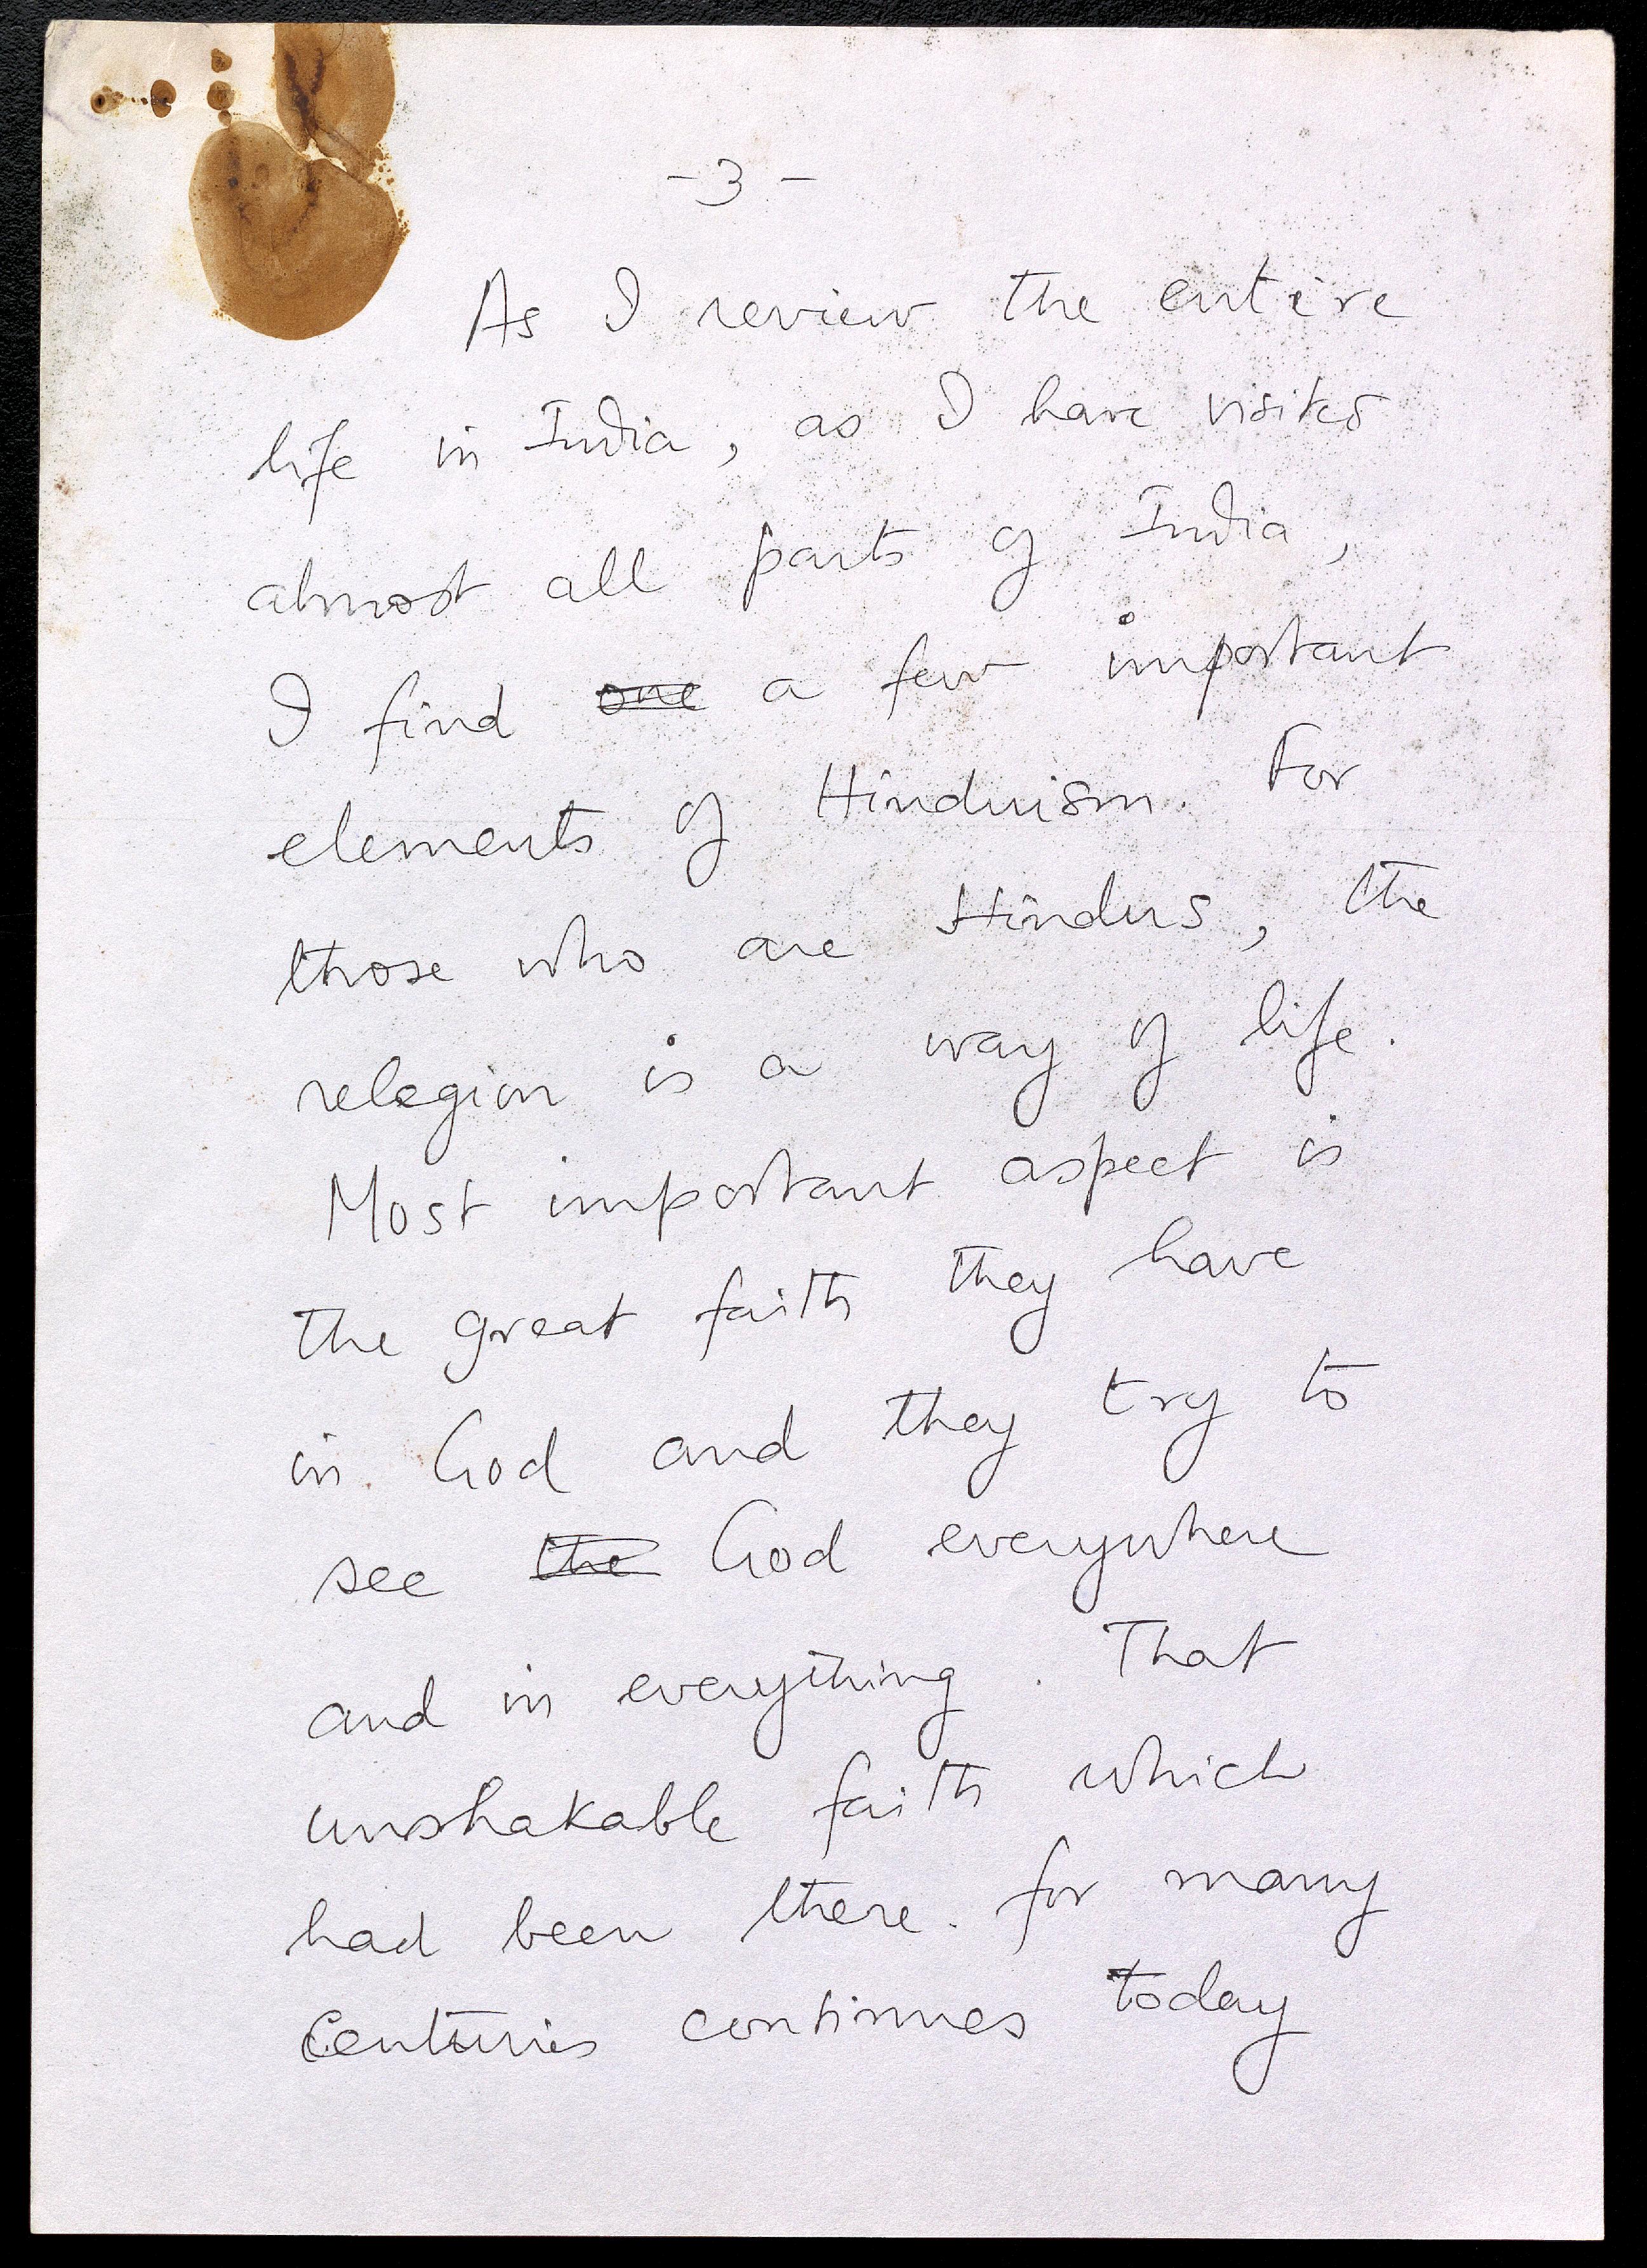 - 3 -
As I review the entire
life in India, as I have visited
almost all parts of India,
I find one a few important
elements of Hinduism. For
those who are Hindus, the
relegion is a way of life.
Most important aspect is
the great faith they have
in God and they try to
see the God everywhere
and in everything. That
unshakable faith which
had been there. for many
Centuries continues today